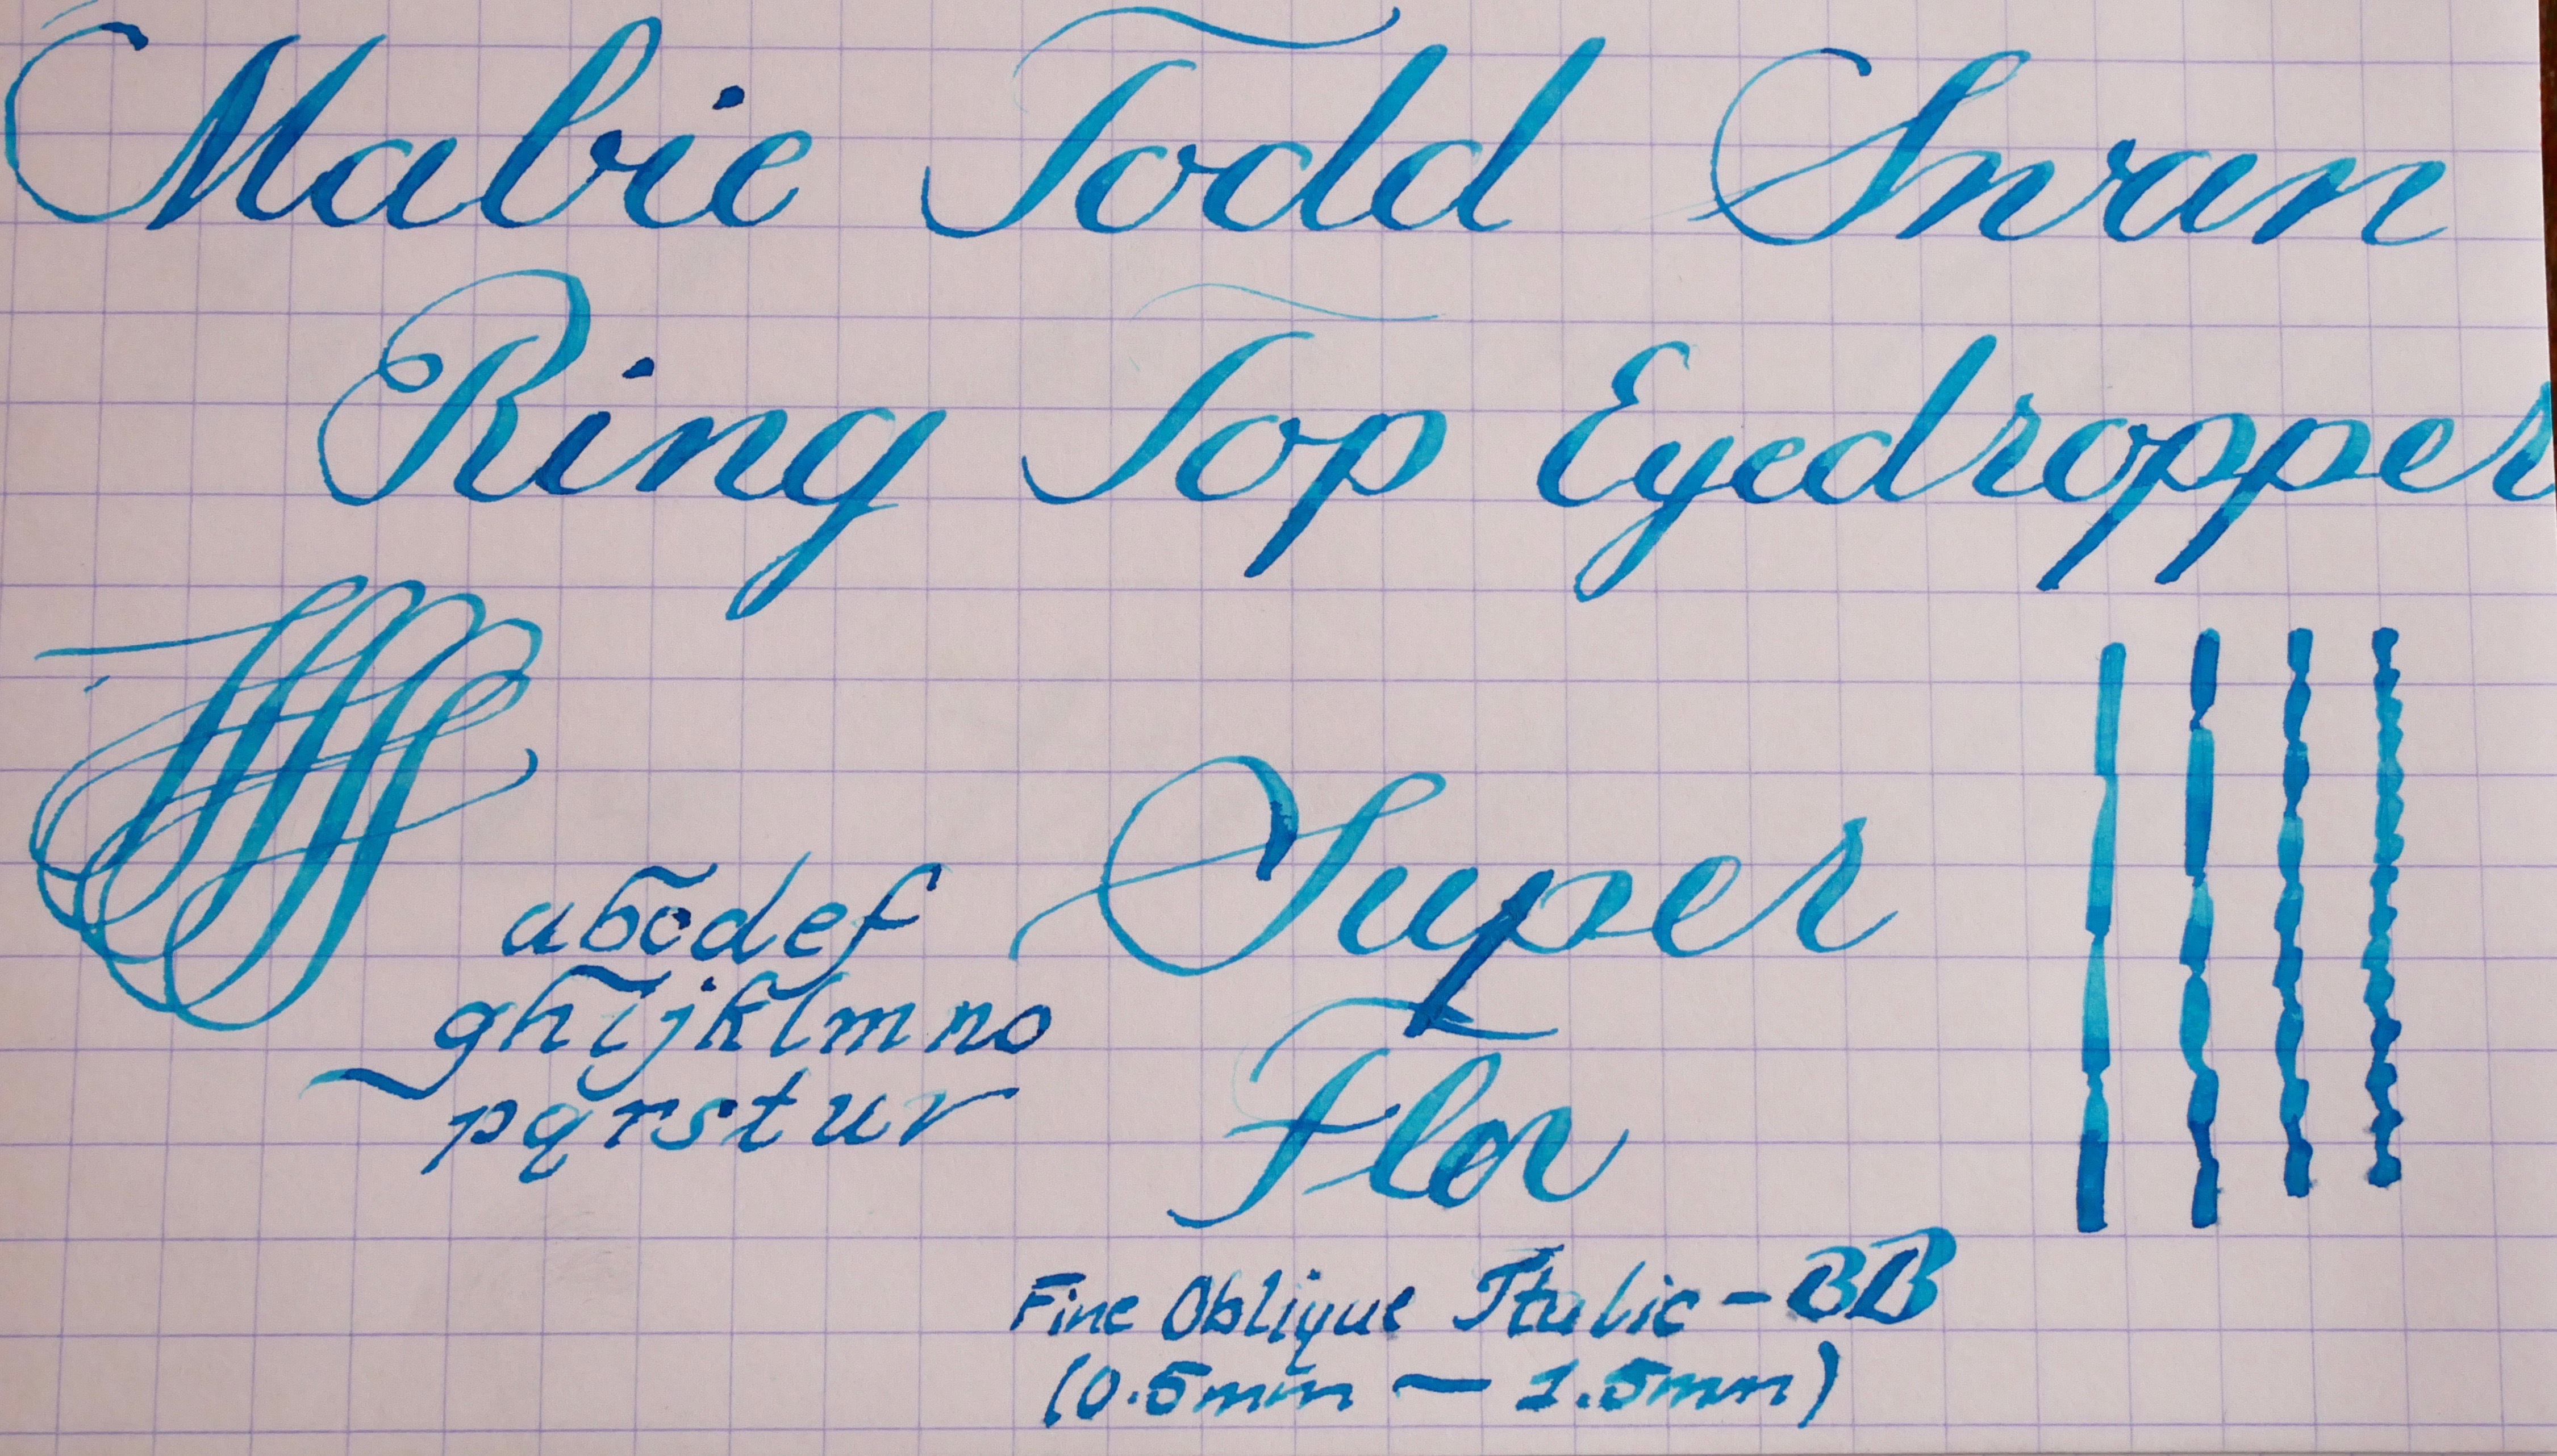 Mabie Todd Swan
Ring Top Eyedropper
abcdef
ghijklmno
pqrstuv
Super
Flex
Fine Oblique Italic - BB
(0.5mm — 1.5mm)